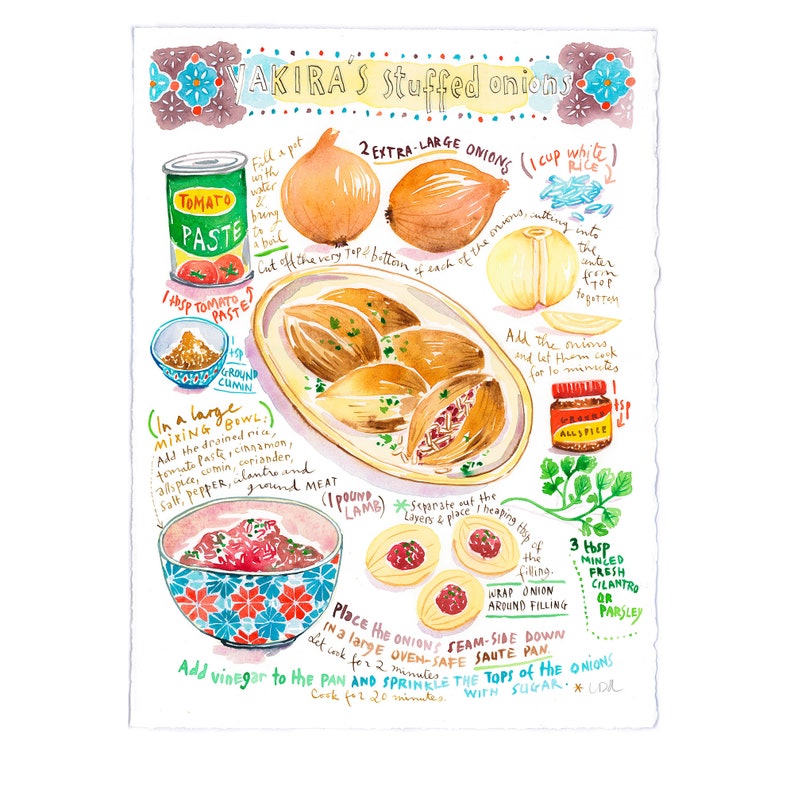 YAKIRA'S stuffed onions
TOMATO
PASTE
1 tbsp TOMATO
PASTE
Fill a pot
with
water
&
bring
to
a boil
2 EXTRA-LARGE ONIONS
(1 cup white
RICE)
Cut off the very TOP & bottom of each of the onions, cutting into
the
center
from
TOP
to bottom
Add the onions,
and let them cook
for 10 minutes
1
tsp
GROUND
CUMIN
1
tsp
GROUND
ALLSPICE
(In a large
MIXING BOWL:)
Add the drained rice,
tomato paste, cinnamon,
allspice, cumin, coriander,
salt, pepper, cilantro and
ground MEAT
(1 POUND
LAMB)
*Separate out the
layers & place 1 heaping tbsp
of
the
filling.
WRAP ONION
AROUND FILLING
3 tbsp
MINCED
FRESH
CILANTRO
OR
PARSLEY
PLACE THE ONIONS SEAM-SIDE DOWN
IN a large OVEN-SAFE SAUTE PAN.
Let cook for 2 minutes
Add vinegar to the pan AND SPRINKLE THE TOPS of the ONIONS
WITH SUGAR. *
Cook for 20 minutes.